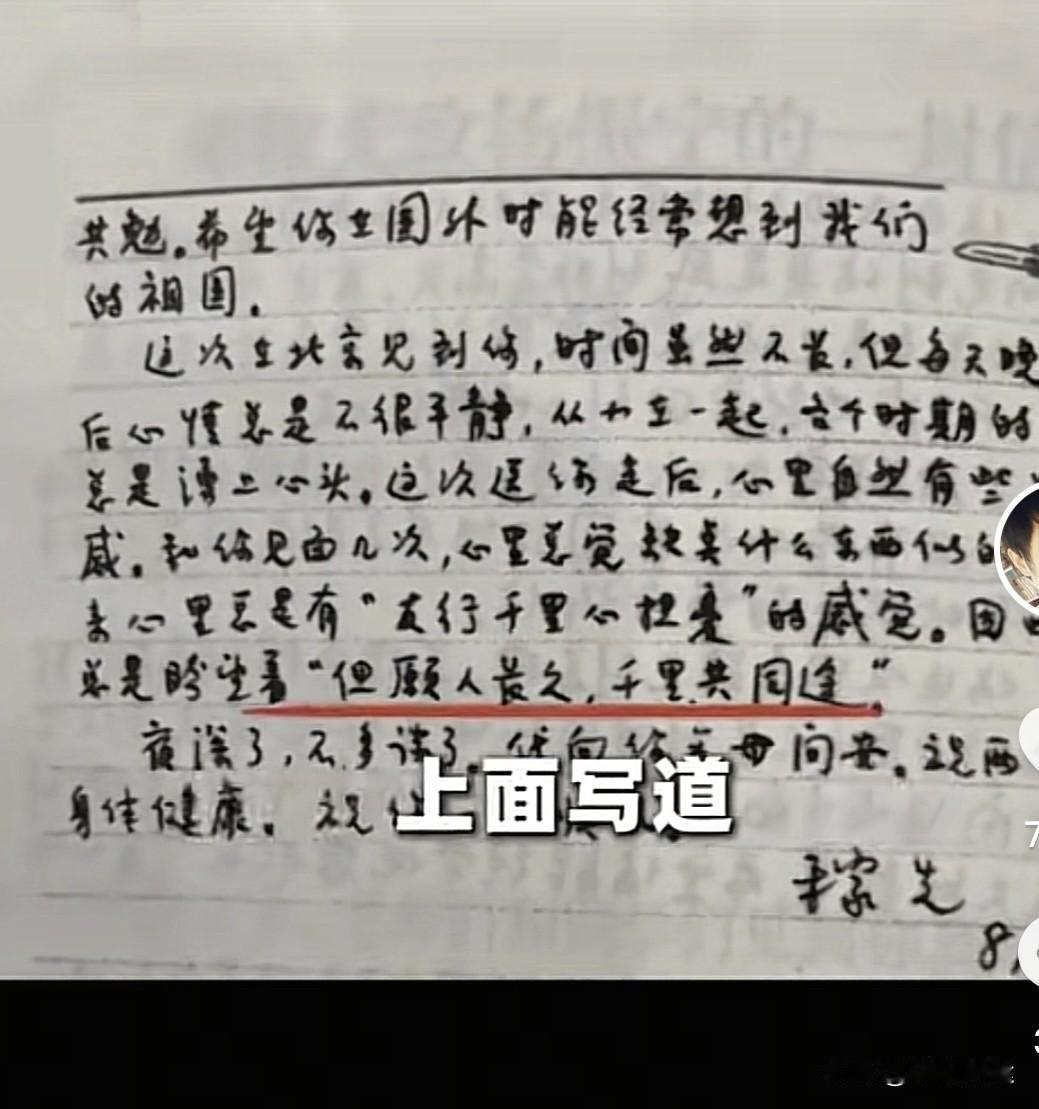 共勉。希望你在国外时能经常想到我们
的祖国。
这次在北京见到你,时间虽然不长,但每天晚
后心情总是不很平静,从
在一起,各个时期的
总是涌上心头。这次送你走后,心里自然有些
感。和你见面几次,心里总觉缺真什么东西似的
来心里总是有“友行千里心担忧”的感觉。因
总是盼望着“但愿人长久,千里共同途”
夜深了,不多谈了。代向你
母问安。祝两
身体健康。祝
上面写道
稼先
8